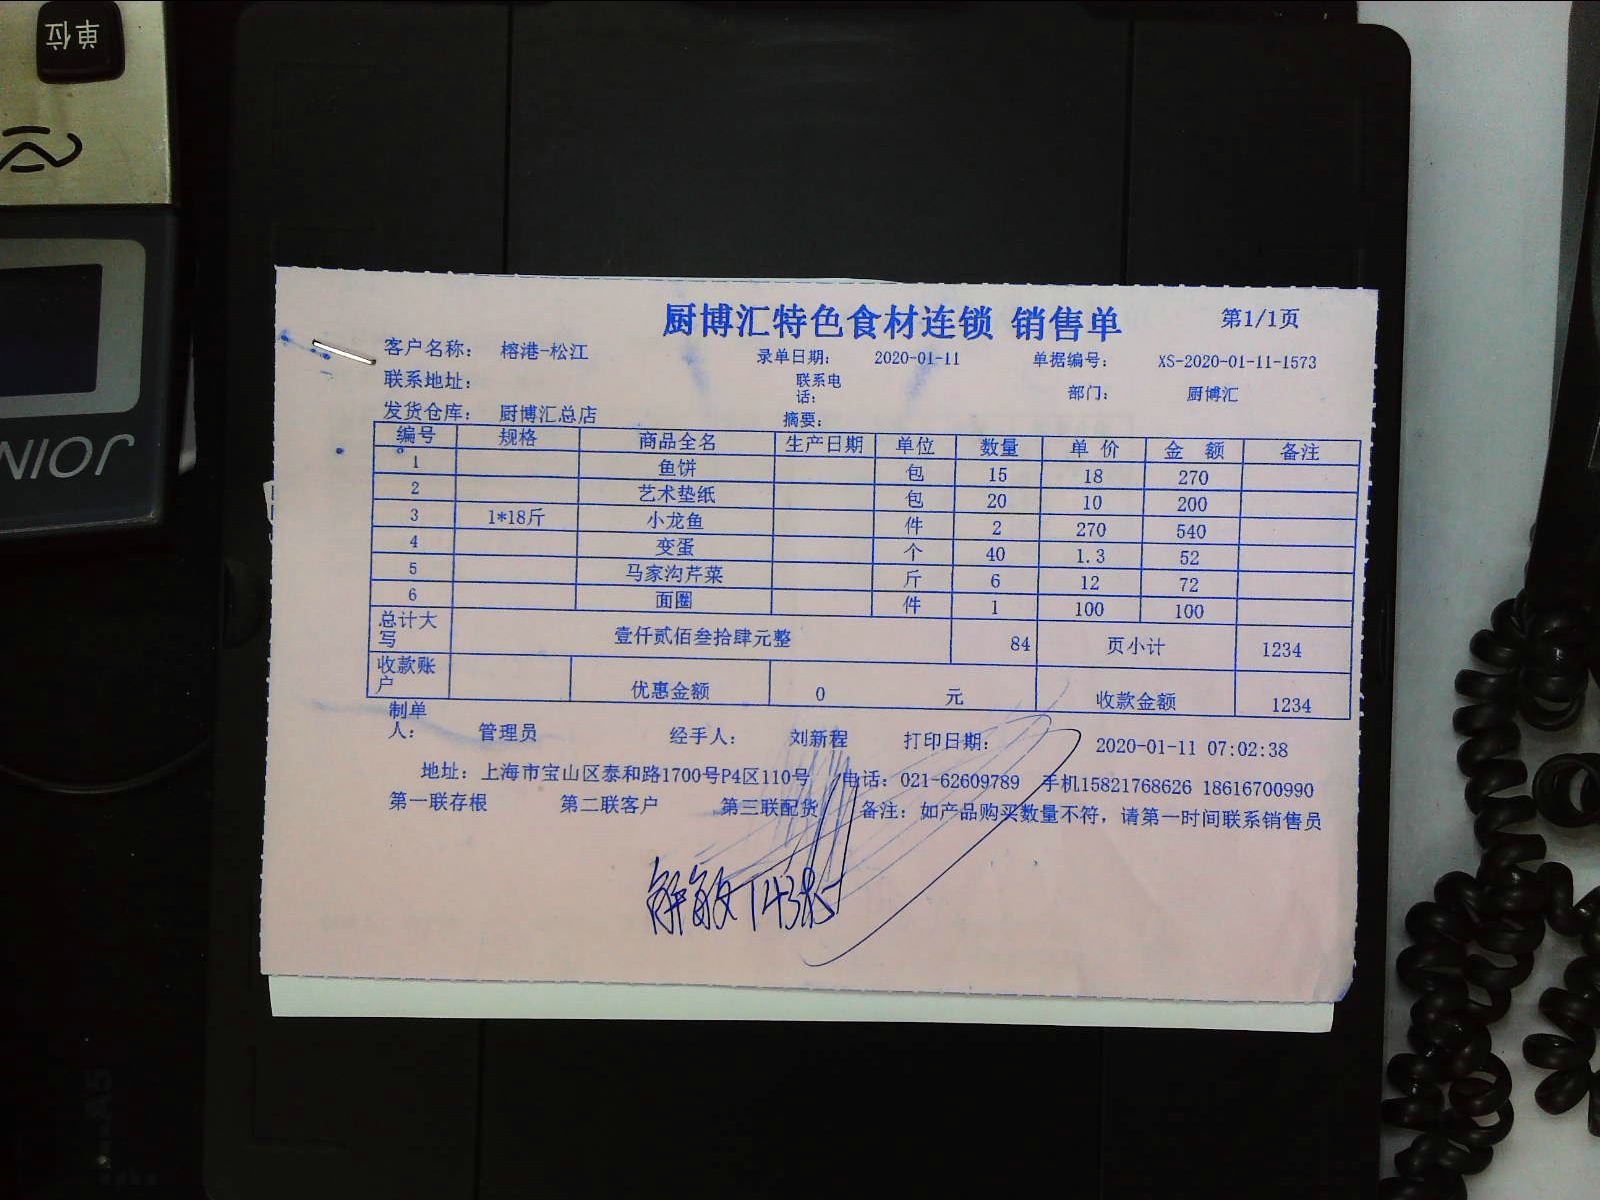 单位
JOIN
厨博汇特色食材连锁 销售单 第1/1页
客户名称: 榕港-松江 录单日期: 2020-01-11 单据编号: XS-2020-01-11-1573
联系地址: 联系电话: 部门: 厨博汇
发货仓库: 厨博汇总店 摘要:
编号 规格 商品全名 生产日期 单位 数量 单价 金额 备注
1 鱼饼 包 15 18 270
2 艺术垫纸 包 20 10 200
3 1*18斤 小龙鱼 件 2 270 540
4 变蛋 个 40 1.3 52
5 马家沟芹菜 斤 6 12 72
6 面圈 件 1 100 100
总计大写 壹仟贰佰叁拾肆元整 84 页小计 1234
收款账户 优惠金额 0 元 收款金额 1234
制单人: 管理员 经手人: 刘新程 打印日期: 2020-01-11 07:02:38
地址: 上海市宝山区泰和路1700号P4区110号 电话: 021-62609789 手机15821768626 18616700990
第一联存根 第二联客户 第三联配货 备注: 如产品购买数量不符, 请第一时间联系销售员